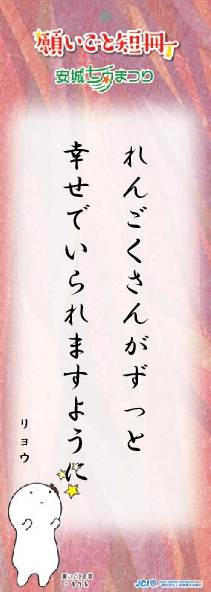 願いごと短冊
安城七夕まつり
れんごくさんがずっと
幸せでいられますように
リョウ
願いごと短冊
JCI